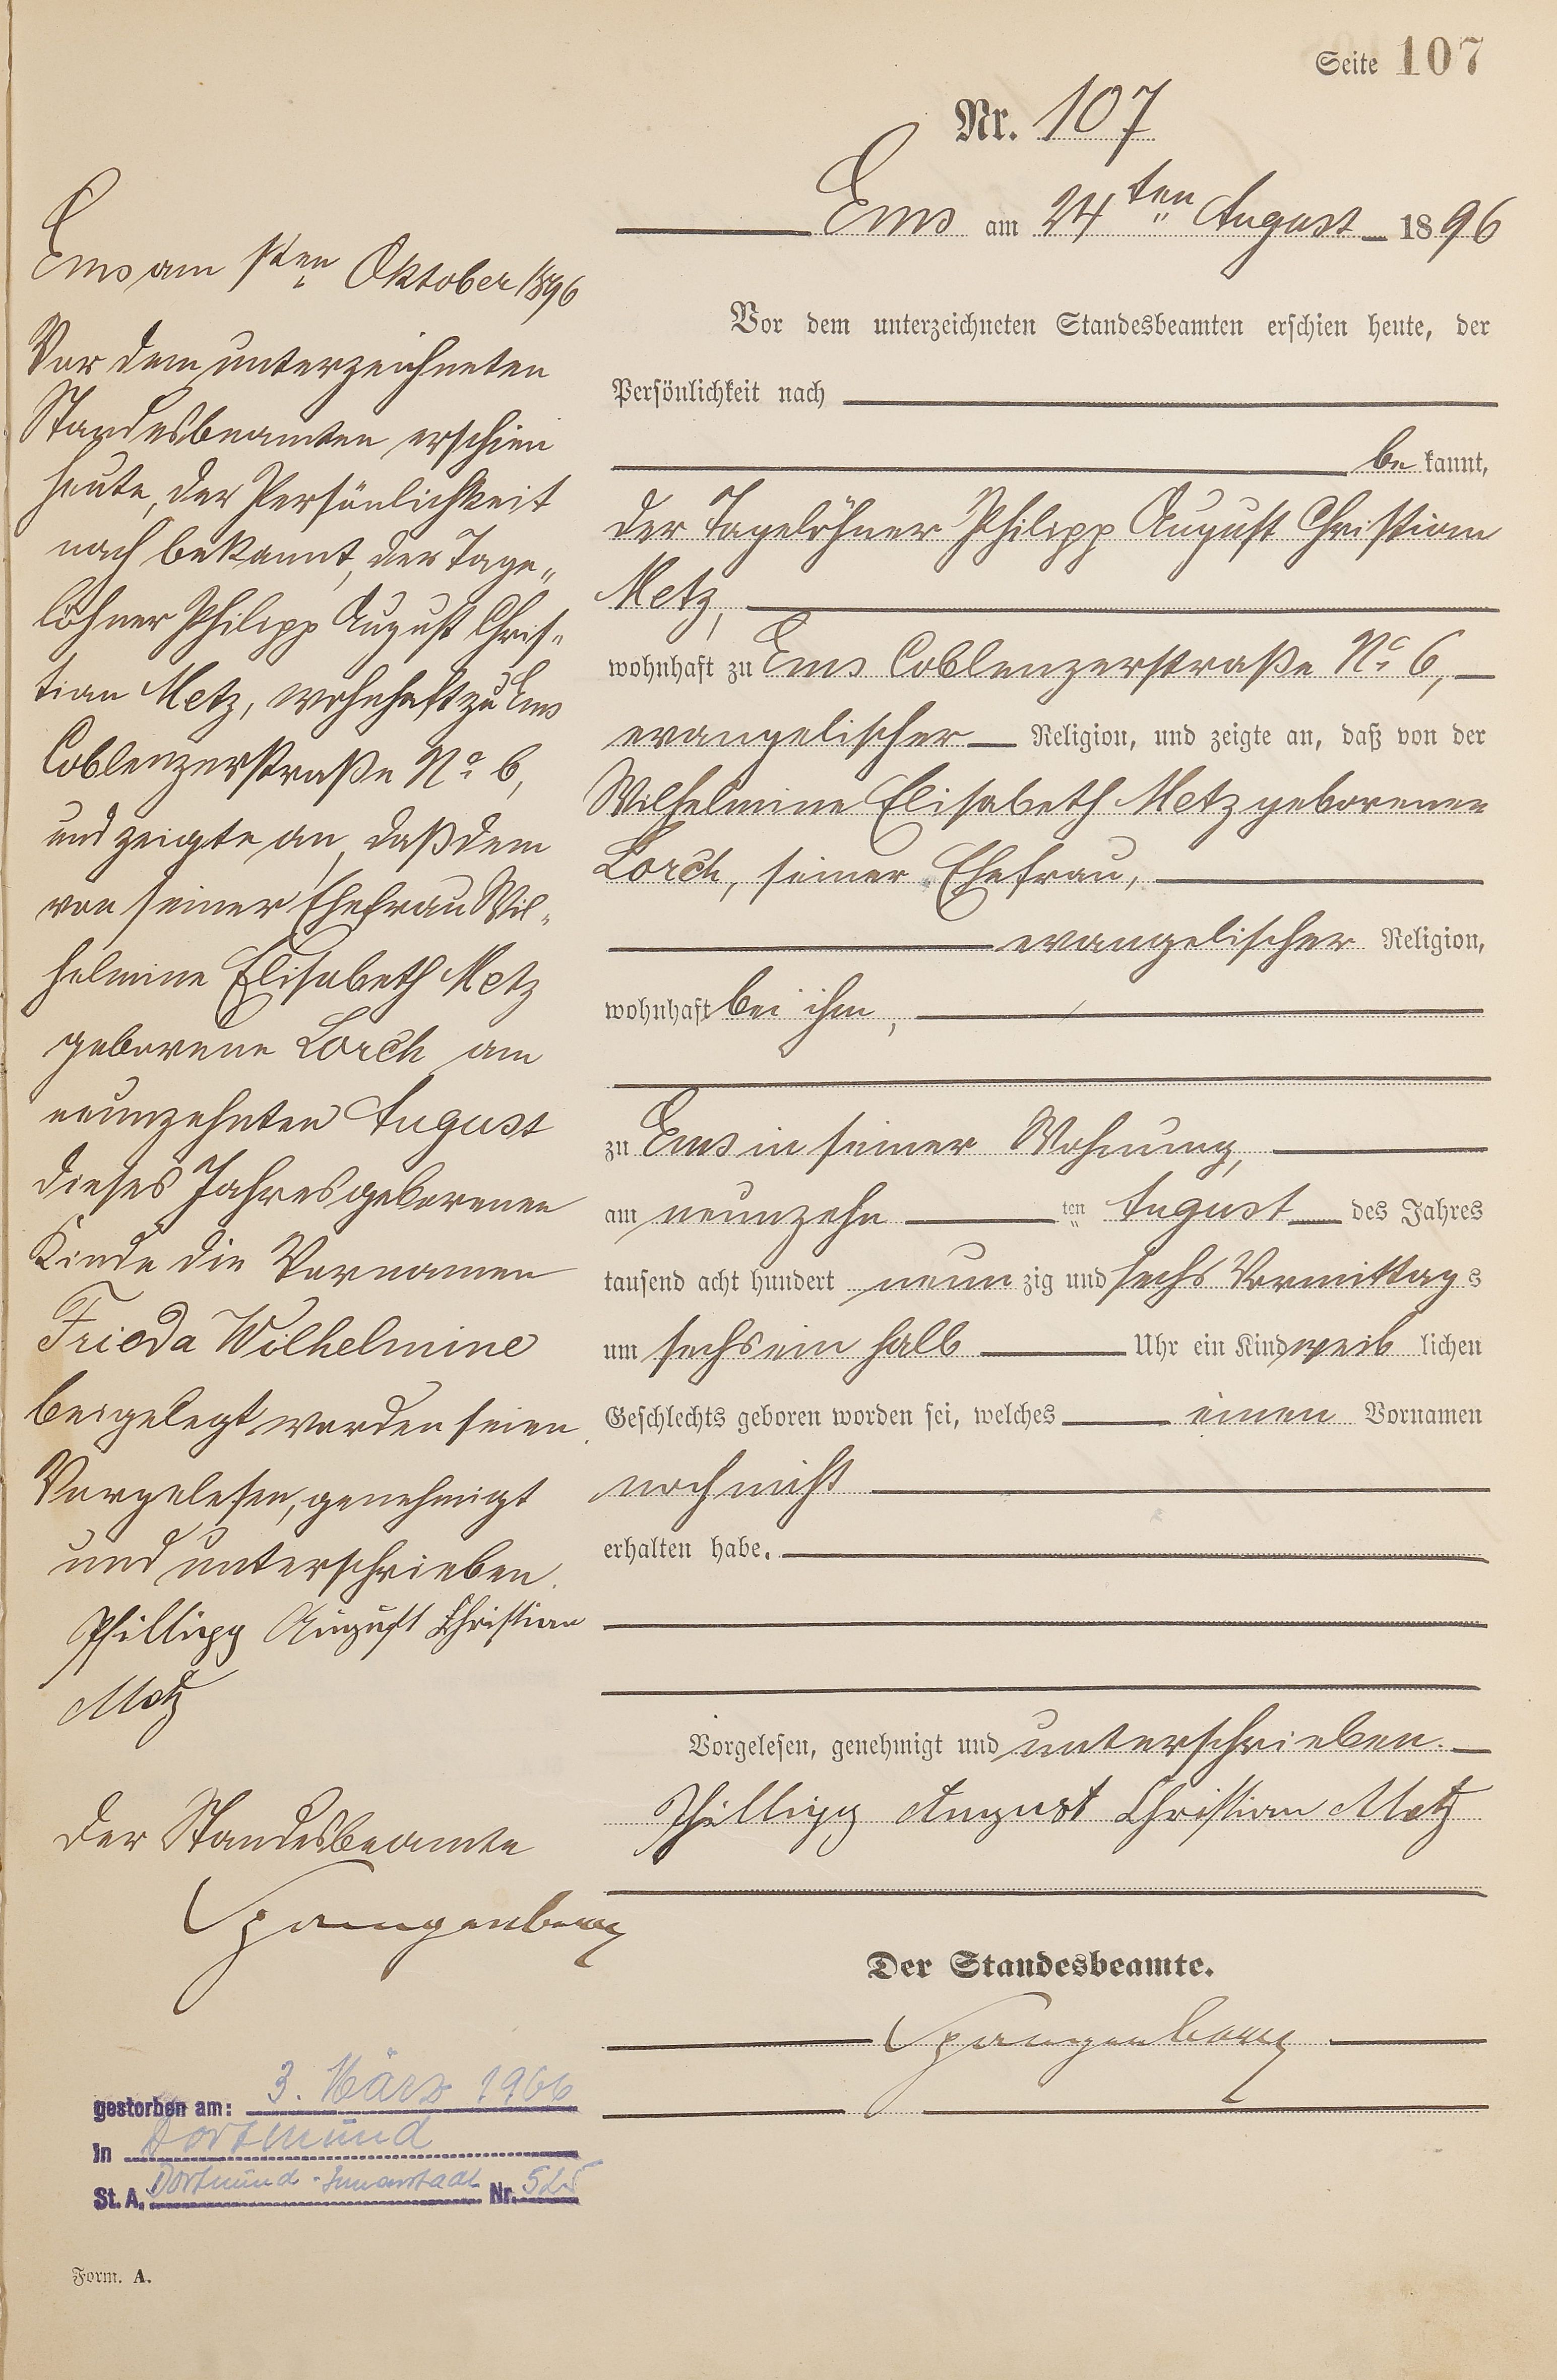 Seite 107
Nr. 107
Ems am 24ten August 1896
Vor dem unterzeichneten Standesbeamten erschien heute, der
Persönlichkeit nach
be kannt,
der Tagelöhner Philipp August Christian
Metz,
wohnhaft zu Ems Coblenzerstraße No 6,
evangelischer Religion, und zeigte an, daß von der
Wilhelmine Elisabeth Metz geborenen
Lorch, seiner Ehefrau,
evangelischer Religion,
wohnhaft bei ihm,
zu Ems in seiner Wohnung,
am neunzehn ten August des Jahres
tausend acht hundert neun zig und sechs Vormittag s
um sechs ein halb Uhr ein Kind weib lichen
Geschlechts geboren worden sei, welches einen Vornamen
noch nicht
erhalten habe.
Vorgelesen, genehmigt und unterschrieben.
Phillipp August Christian Metz
Der Standesbeamte.
Spangenberg
Ems am 1ten Oktober 1896
Vor dem unterzeichneten
Standesbeamten erschien
heute, der Persönlichkeit
nach bekannt, der Tage„
löhner Philipp August Chris„
tian Metz, wohnhaft zu Ems
Coblenzerstraße No 6,
und zeigte an, daß dem
von seiner Ehefrau Wil„
helmine Elisabeth Metz
geborene Lorch am
neunzehnten August
dieses Jahres geborenen
Kinde die Vornamen
Frieda Wilhelmine
beigelegt worden seien.
Vorgelesen, genehmigt
und unterschrieben.
Phillipp August Christian
Metz
Der Standesbeamte
Spangenberg
gestorben am: 3. März 1966
in Dortmund
St. A. Dortmund-Innenstadt Nr. 525
Form. A.